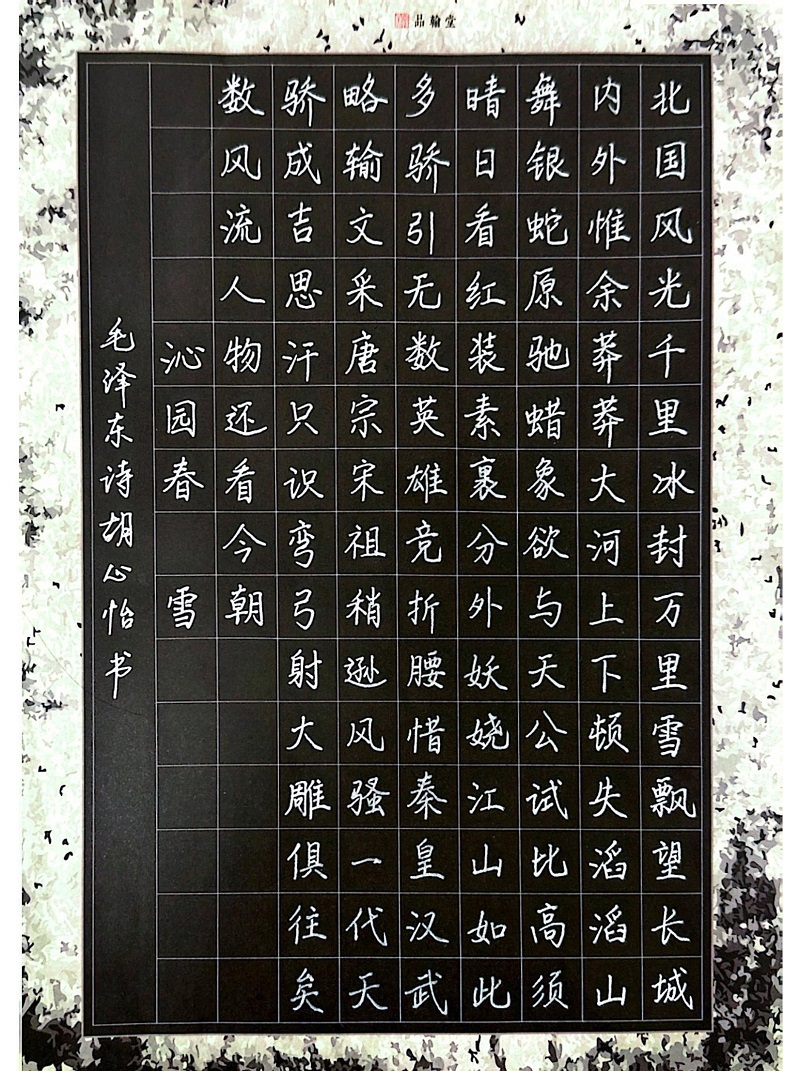 品翰堂
北国风光千里冰封万里雪飘望长城
内外惟余莽莽大河上下顿失滔滔山
舞银蛇原驰蜡象欲与天公试比高须
晴日看红装素裹分外妖娆江山如此
多骄引无数英雄竞折腰惜秦皇汉武
略输文采唐宗宋祖稍逊风骚一代天
骄成吉思汗只识弯弓射大雕俱往矣
数风流人物还看今朝
沁园春 雪
毛泽东诗胡心怡书